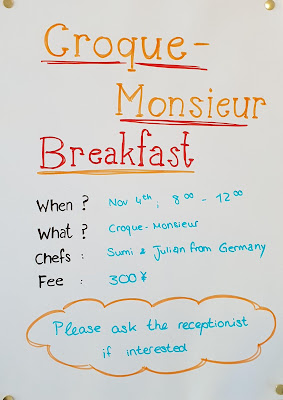 Croque-
Monsieur
Breakfast
When ? Nov 4th, 8⁰⁰ - 12⁰⁰
What ? Croque-Monsieur
Chefs : Sumi & Julian from Germany
Fee : 300¥
Please ask the receptionist
if interested